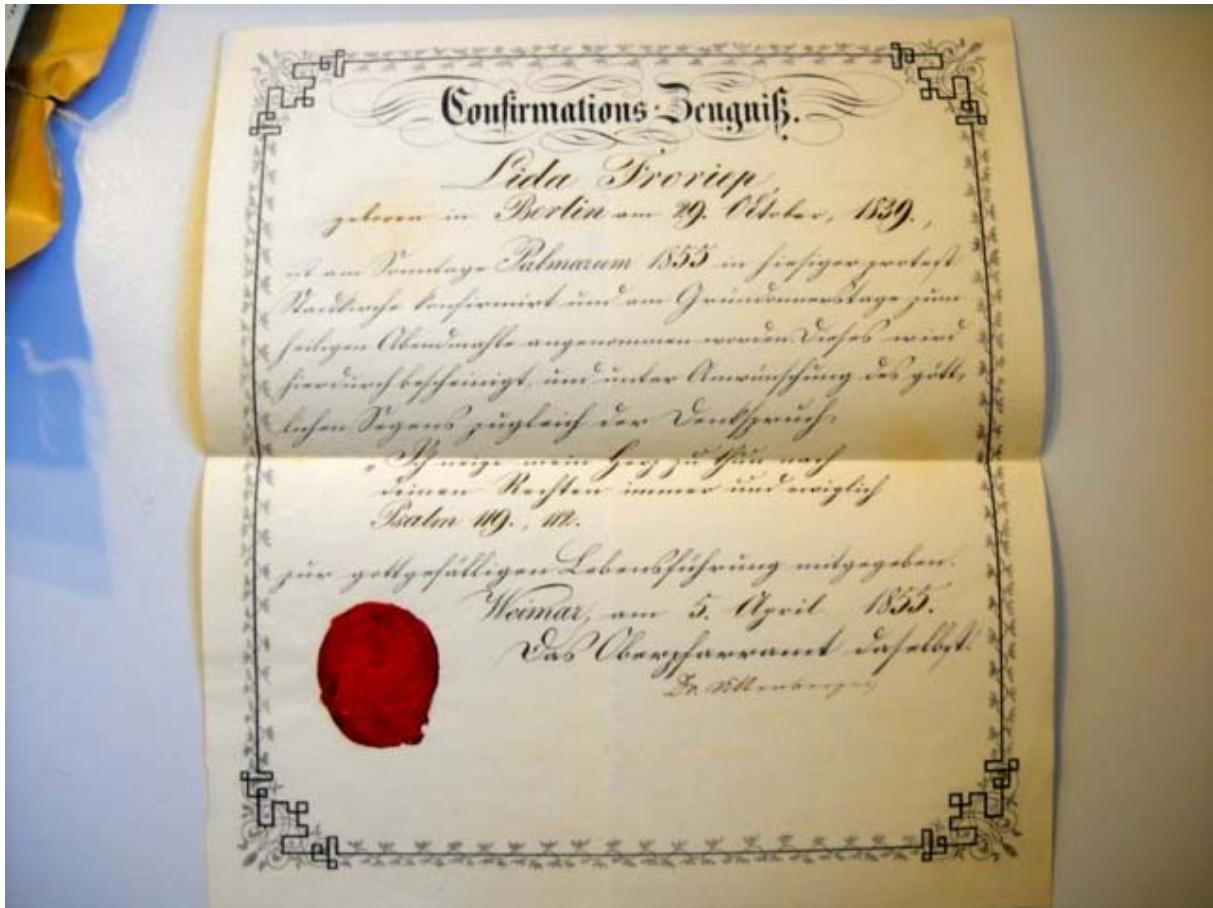 Confirmations-Zeugniß.
Lida Froriep,
geboren in Berlin am 29. Oktober, 1839.,
ist am Sonntage Palmarum 1855 in hiesiger protest
Stadtkirche konfirmirt und am Gründonnerstage zum
heiligen Abendmahle angenommen worden. Dieses wird
hierdurch bescheinigt, und unter Anwünschung des gött-
lichen Segens zugleich der Denkspruch:
„Ich neige mein Herz zu thun nach
deinen Rechten immer und ewiglich
Psalm 119., 112.
zur gottgefälligen Lebensführung mitgegeben.
Weimar, am 5. April 1855.
Das Oberpfarramt daselbst.
Dr.